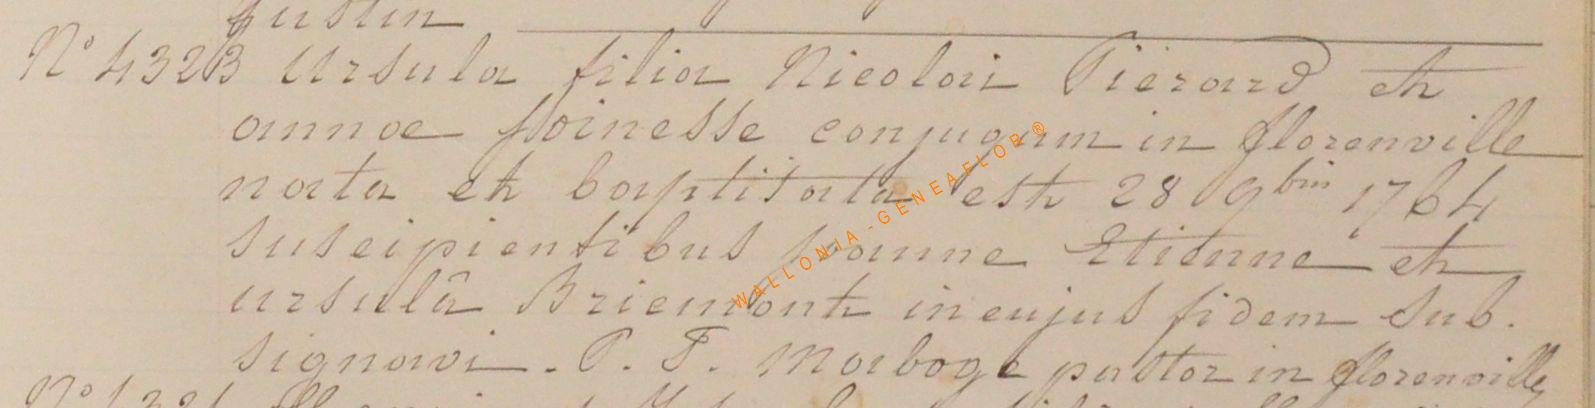 justin
N° 4323 Ursula filia Nicolai Piérard et
annae foinesse conjugum in florenville
nata et baptisata est 28 9bris 1764
suscipientibus joanne Etienne et
ursulâ Briemont in cujus fidem sub.
signavi. P. F. Marboge pastor in florenville
WALLONIA-GENEAFLOR®